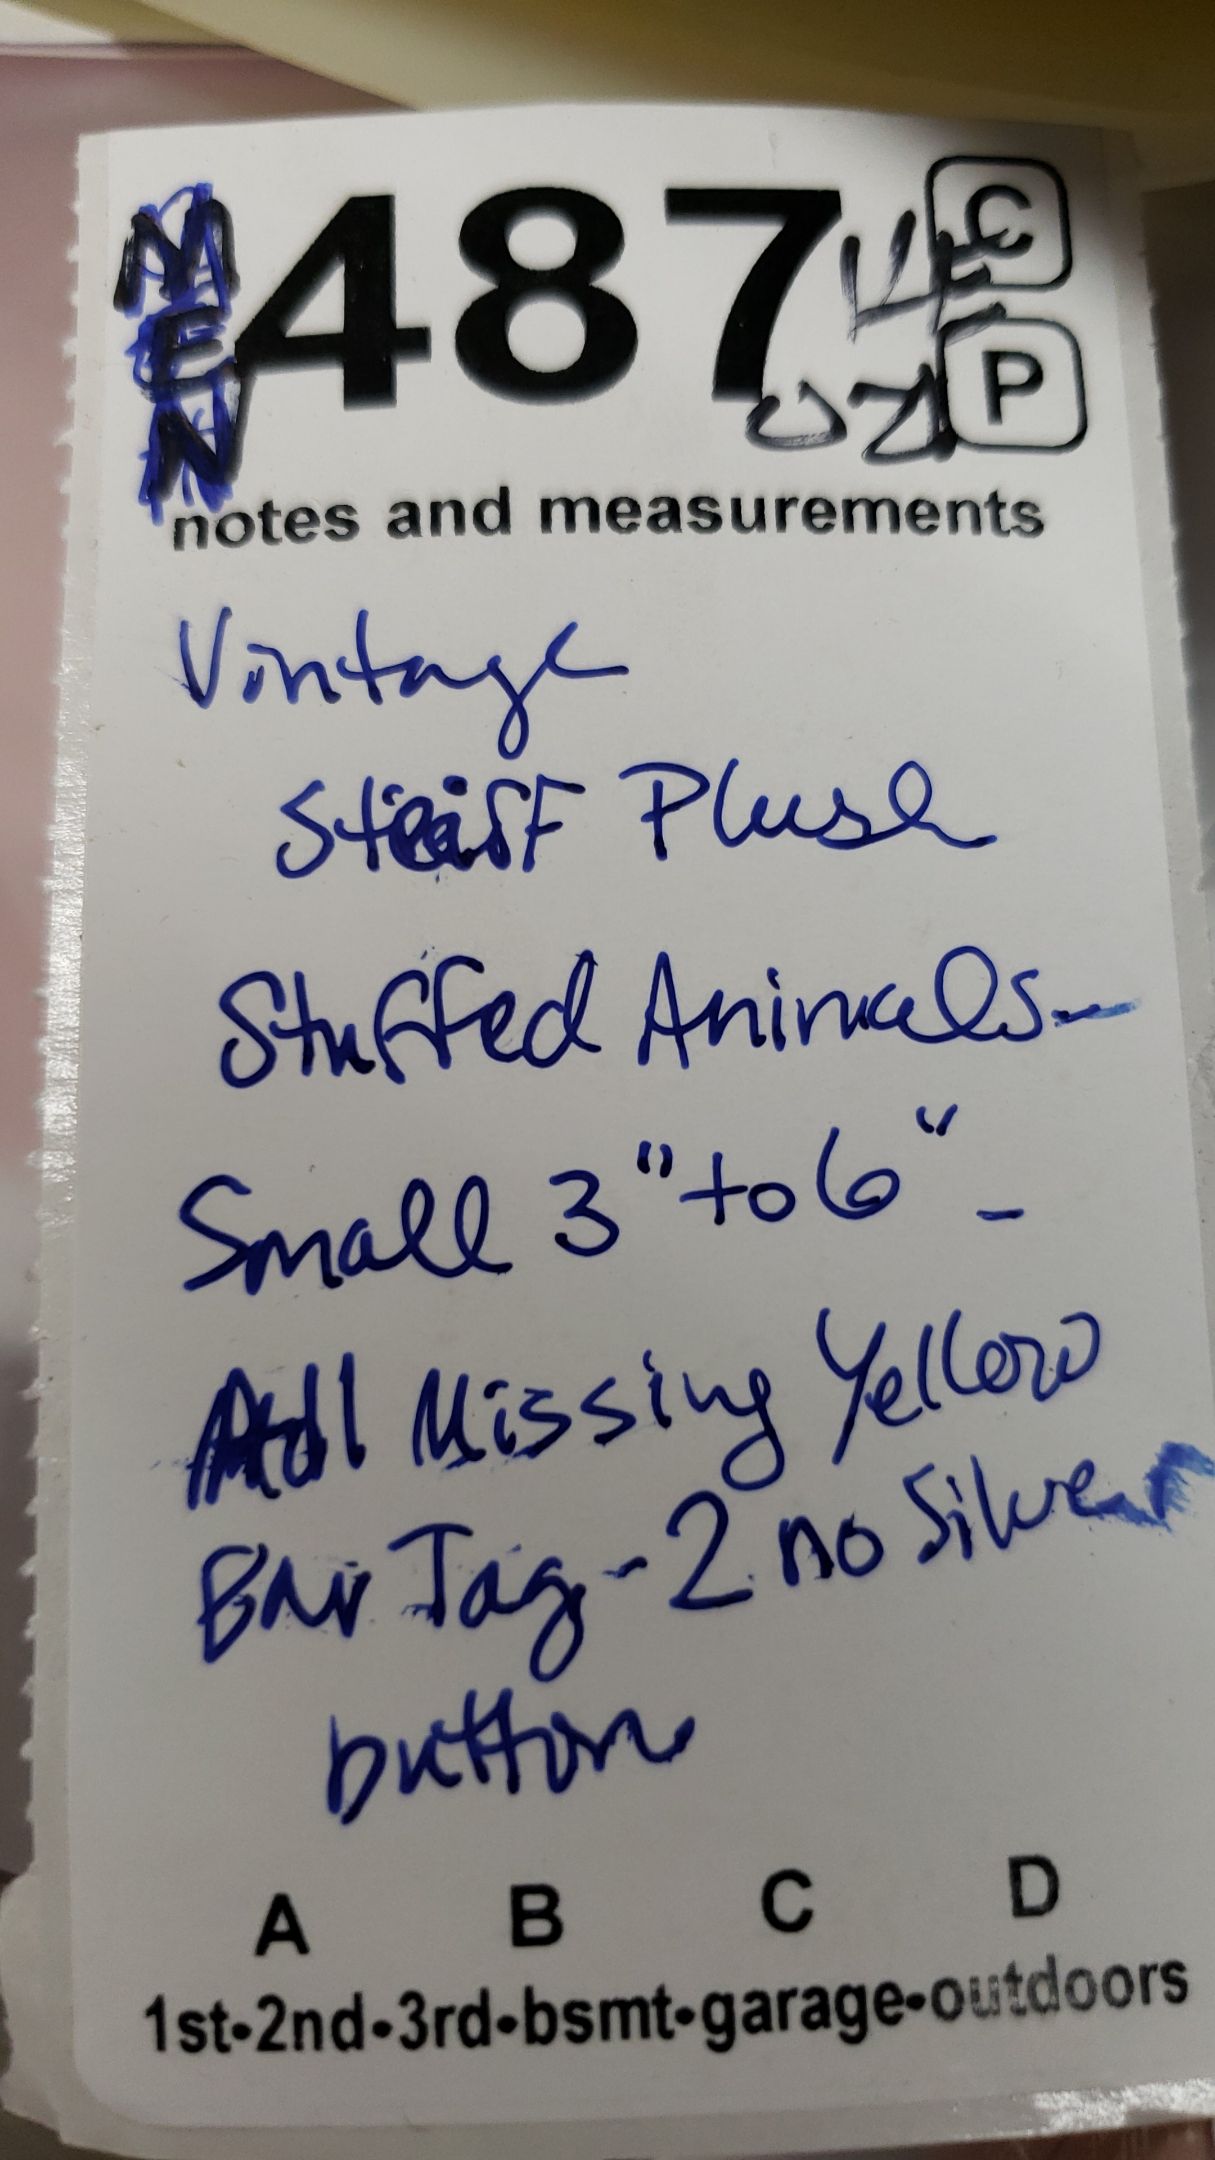 MEN 487 C
14 P
OZ
notes and measurements
Vintage
Steiff Plush
Stuffed Animals-
Small 3" to 6" -
All Missing Yellow
Ear Tag - 2 no Silver
button
A B C D
1st•2nd•3rd•bsmt•garage•outdoors